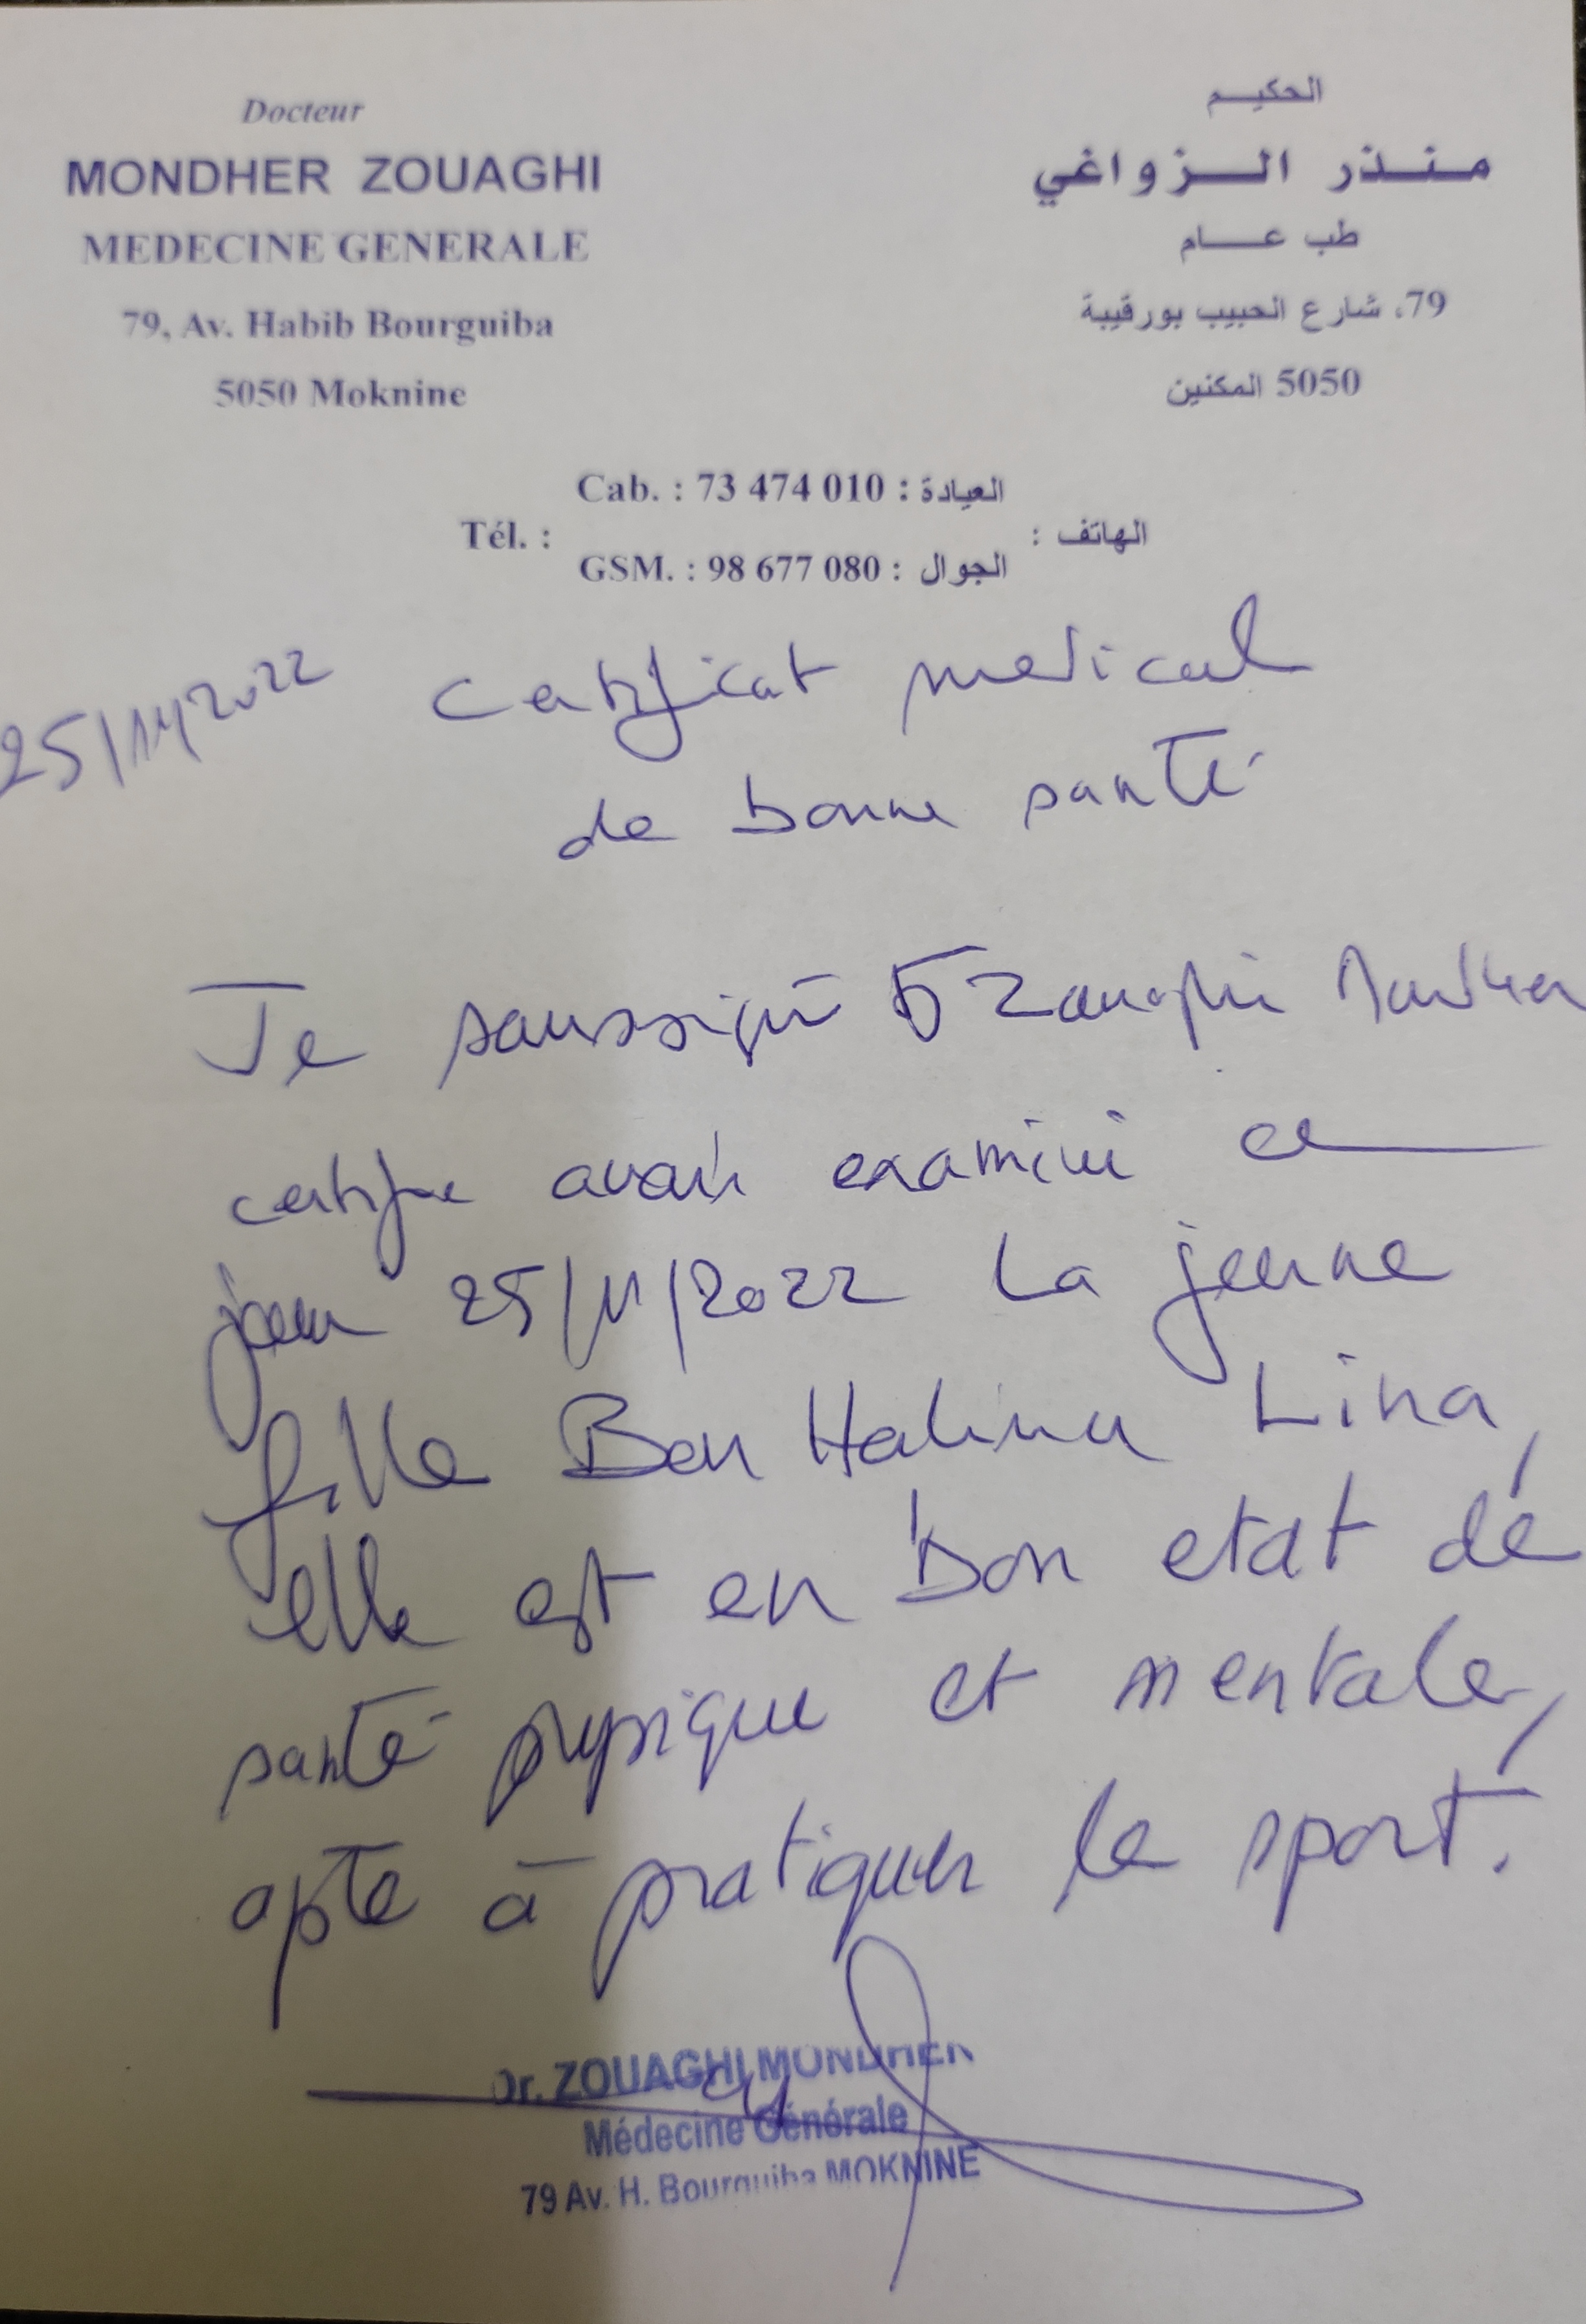 Docteur
MONDHER ZOUAGHI
MEDECINE GENERALE
79, Av. Habib Bourguiba
5050 Moknine
الحكيم
منذر الزواغي
طب عام
79، شارع الحبيب بورقيبة
5050 المكنين
Tél. :
Cab. : 73 474 010 : العيادة
GSM. : 98 677 080 : الجوال
الهاتف :
25/11/2022
Certificat medical
de bonne santé
Je soussigné Dr Zouaghi Mondher
certifie avoir examiné ce
jour 25/11/2022 La jeune
fille Ben Halima Lina,
elle est en bon etat de
santé physique et mentale,
apte à pratiquer le sport.
Dr. ZOUAGHI MONDHER
Médecine Générale
79 Av. H. Bourguiba MOKNINE